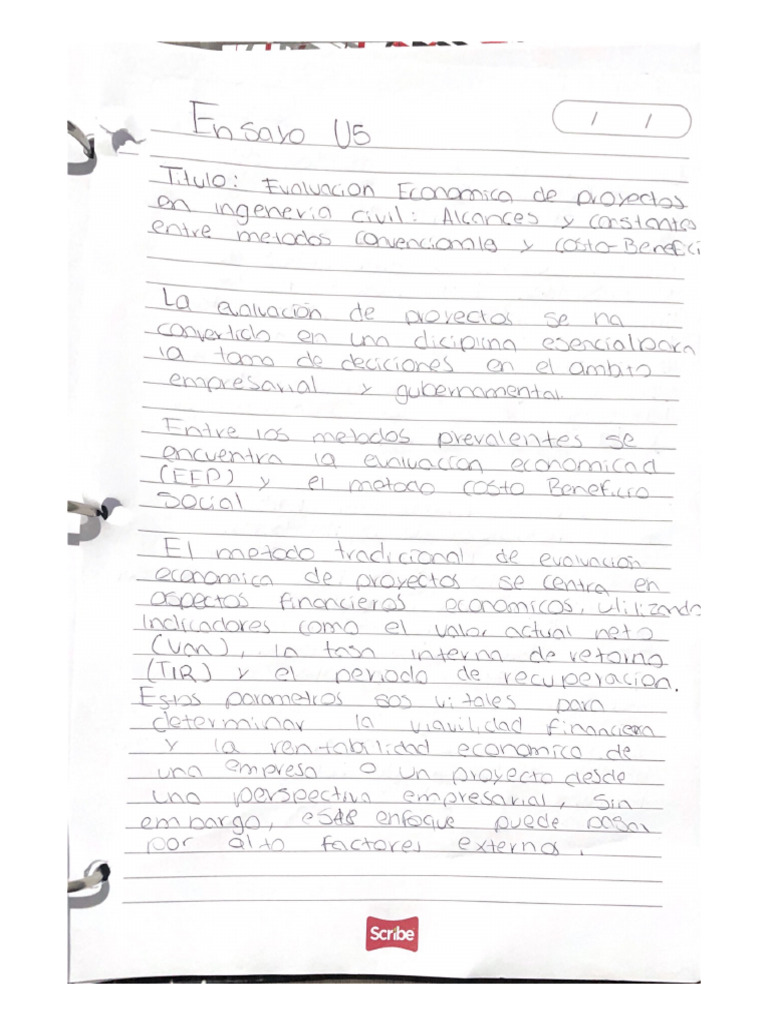 Ensayo U5
/ /
Titulo: Evaluacion Economica de proyectos
en ingenieria civil: Alcances y constantes
entre metodos convencionales y costo-Benefici
La evaluación de proyectos se ha
convertido en una diciplina esencial para
la toma de deciciones en el ambito
empresarial y gubernamental.
Entre los metodos prevalentes se
encuentra la evaluacion economicad
(EEP) y el metodo costo Beneficio
Social
El metodo tradicional de evaluacion
economica de proyectos se centra en
aspectos financieros economicos, utilizando
indicadores como el valor actual neto
(Van), la tasa interna de retorno
(TIR) y el periodo de recuperacion.
Estos parametros sos vitales para
determinar la viavilidad financiera
y la rentabilidad economica de
una empresa o un proyecto desde
una perspectiva empresarial, Sin
embargo, este enfoque puede pasar
por alto factores externos.
Scribe